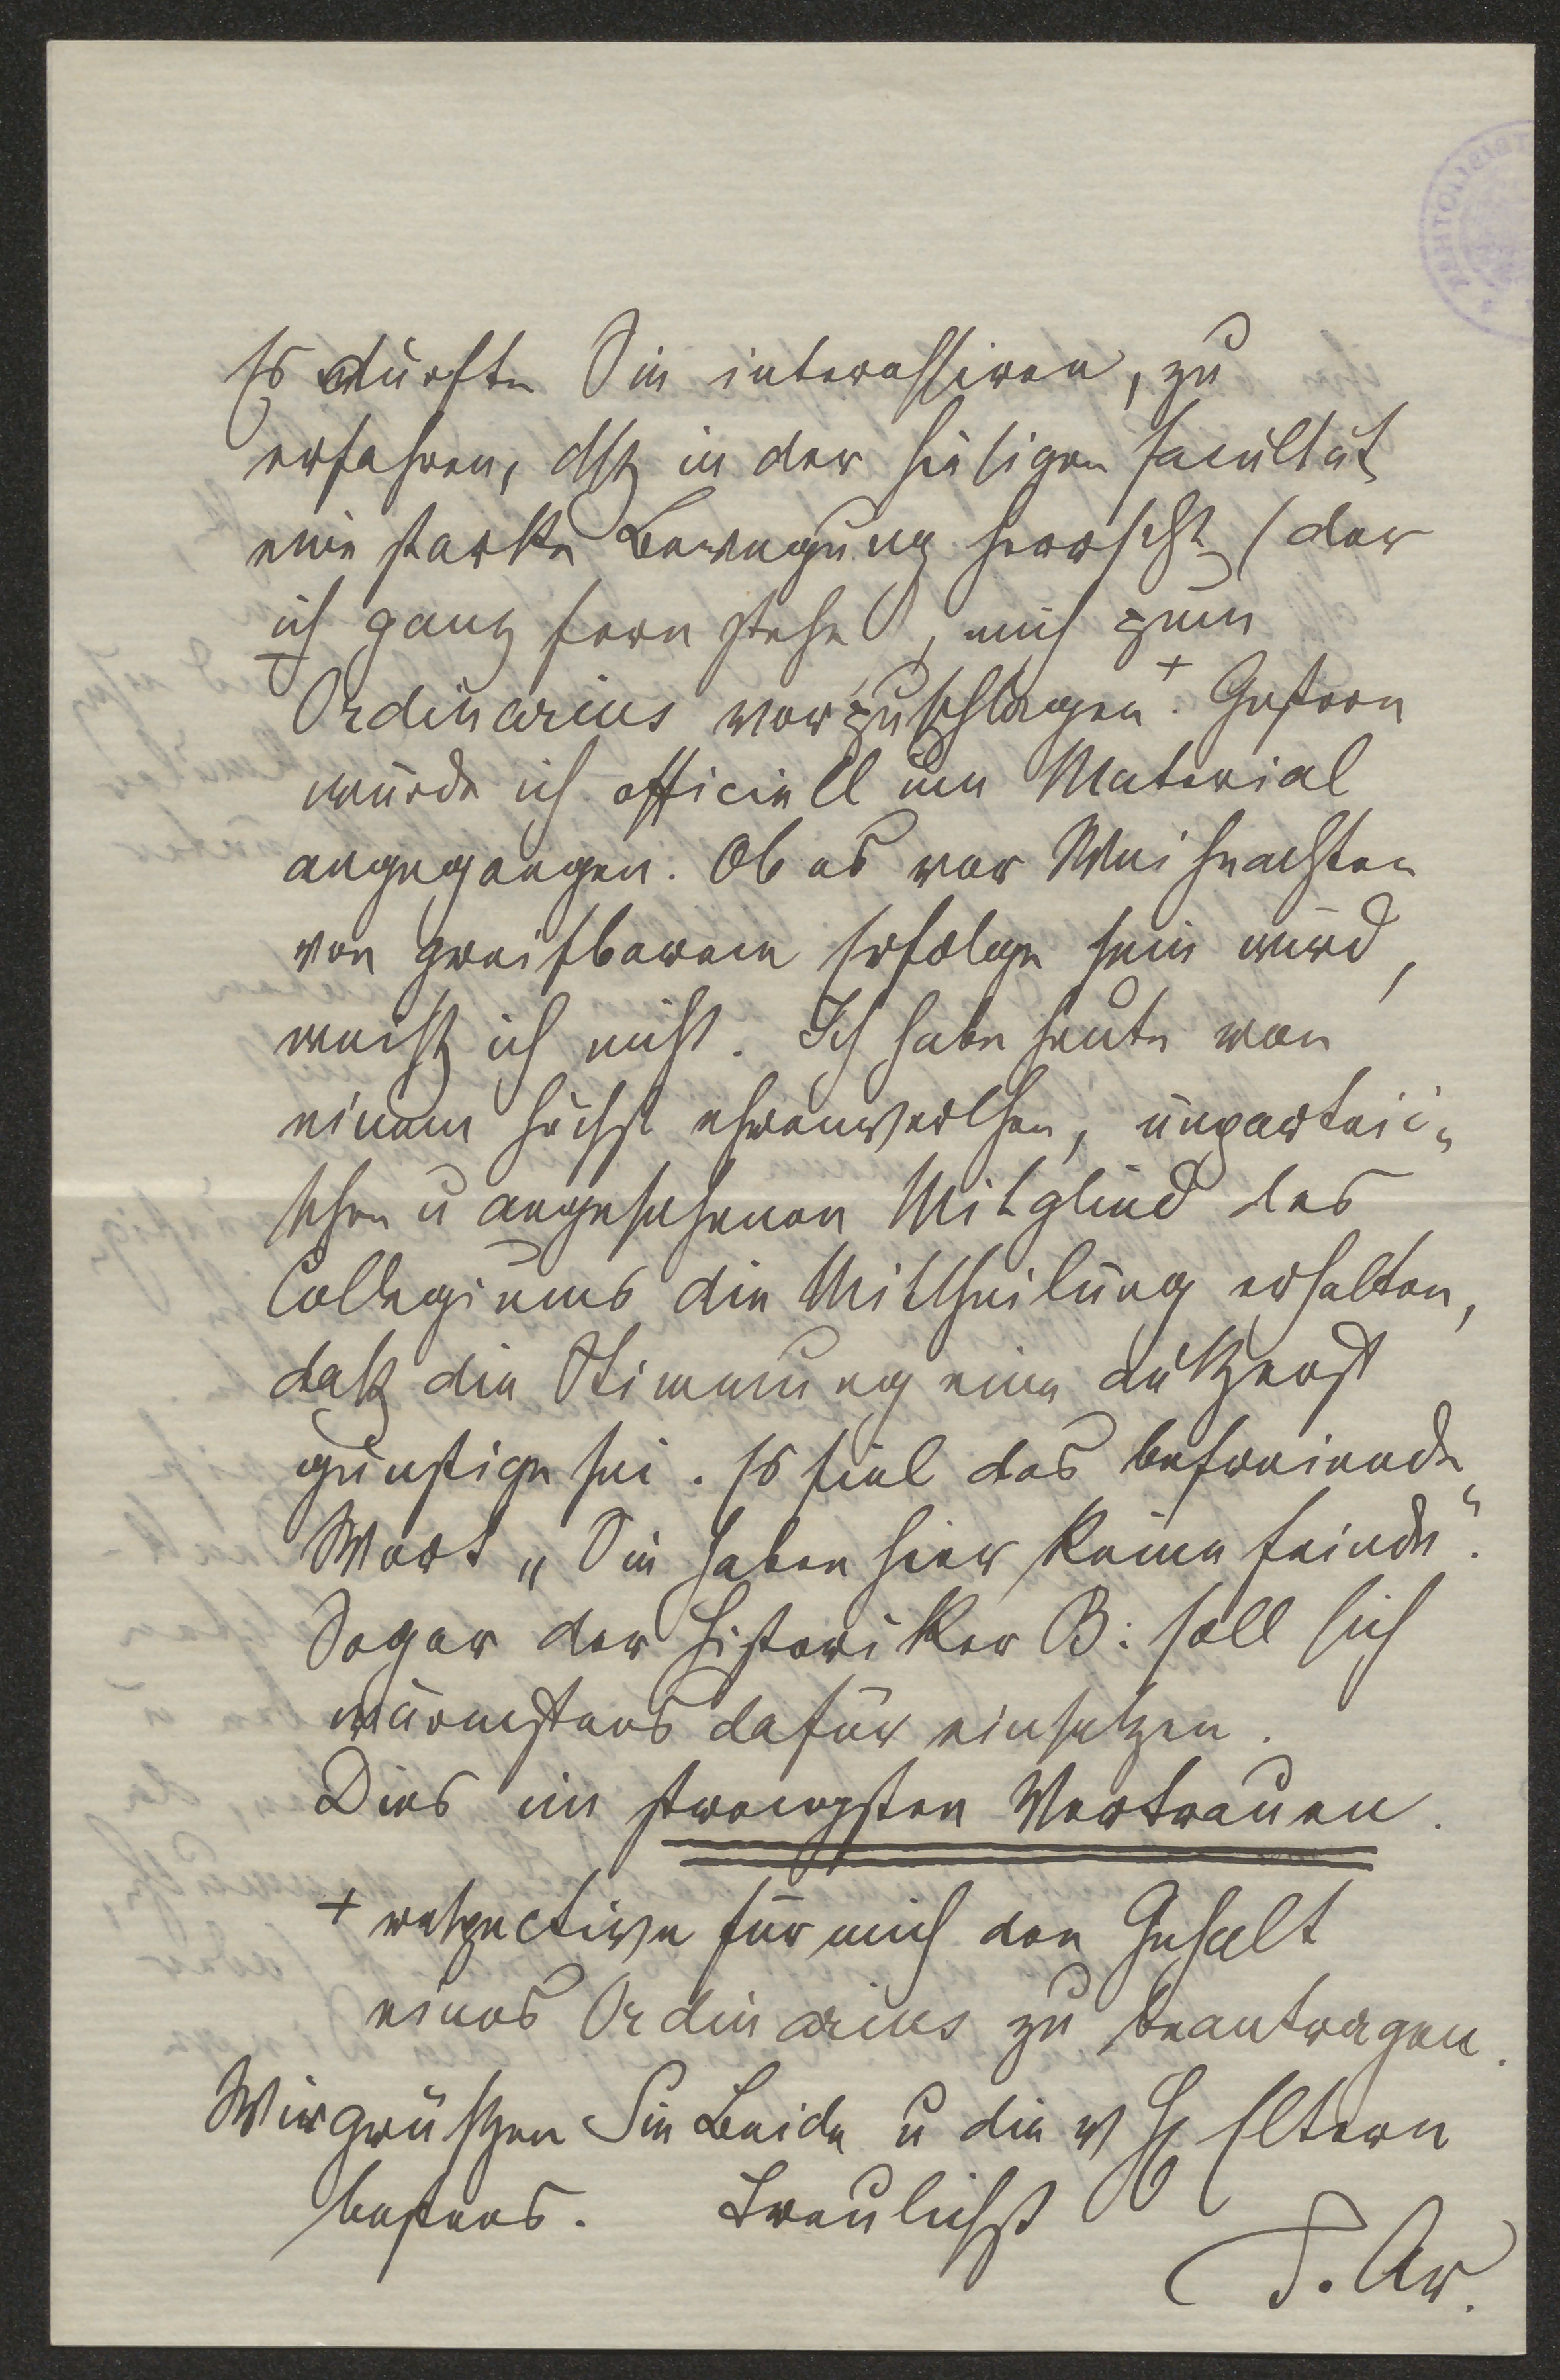 Es dürfte Sie interessiren, zu
erfahren, dß in der hiesigen Facultät
eine starke Bewegung herrscht (der
ich ganz fern stehe), mich zum
Ordinarius vorzuschlagen+. Gestern
wurde ich officiell um Material
angegangen. Ob es vor Weihnachten
von greifbarem Erfolge sein wird,
weiß ich nicht. Ich habe heute von
einem höchst ehrenwerthen, unparteii-
schen u angesehenen Mitglied des
Collegiums die Mittheilung erhalten,
daß die Stimmung eine äußerst
günstige sei. Es fiel das befreiende
Wort „Sie haben hier keine Feinde“.
Sogar der Historiker B: soll sich
wärmstens dafür einsetzen.
Dies im strengsten Vertrauen.
+ respective für mich den Gehalt
eines Ordinarius zu beantragen.
Wir grüßen Sie Beide u die v H Eltern
bestens. Treulichst